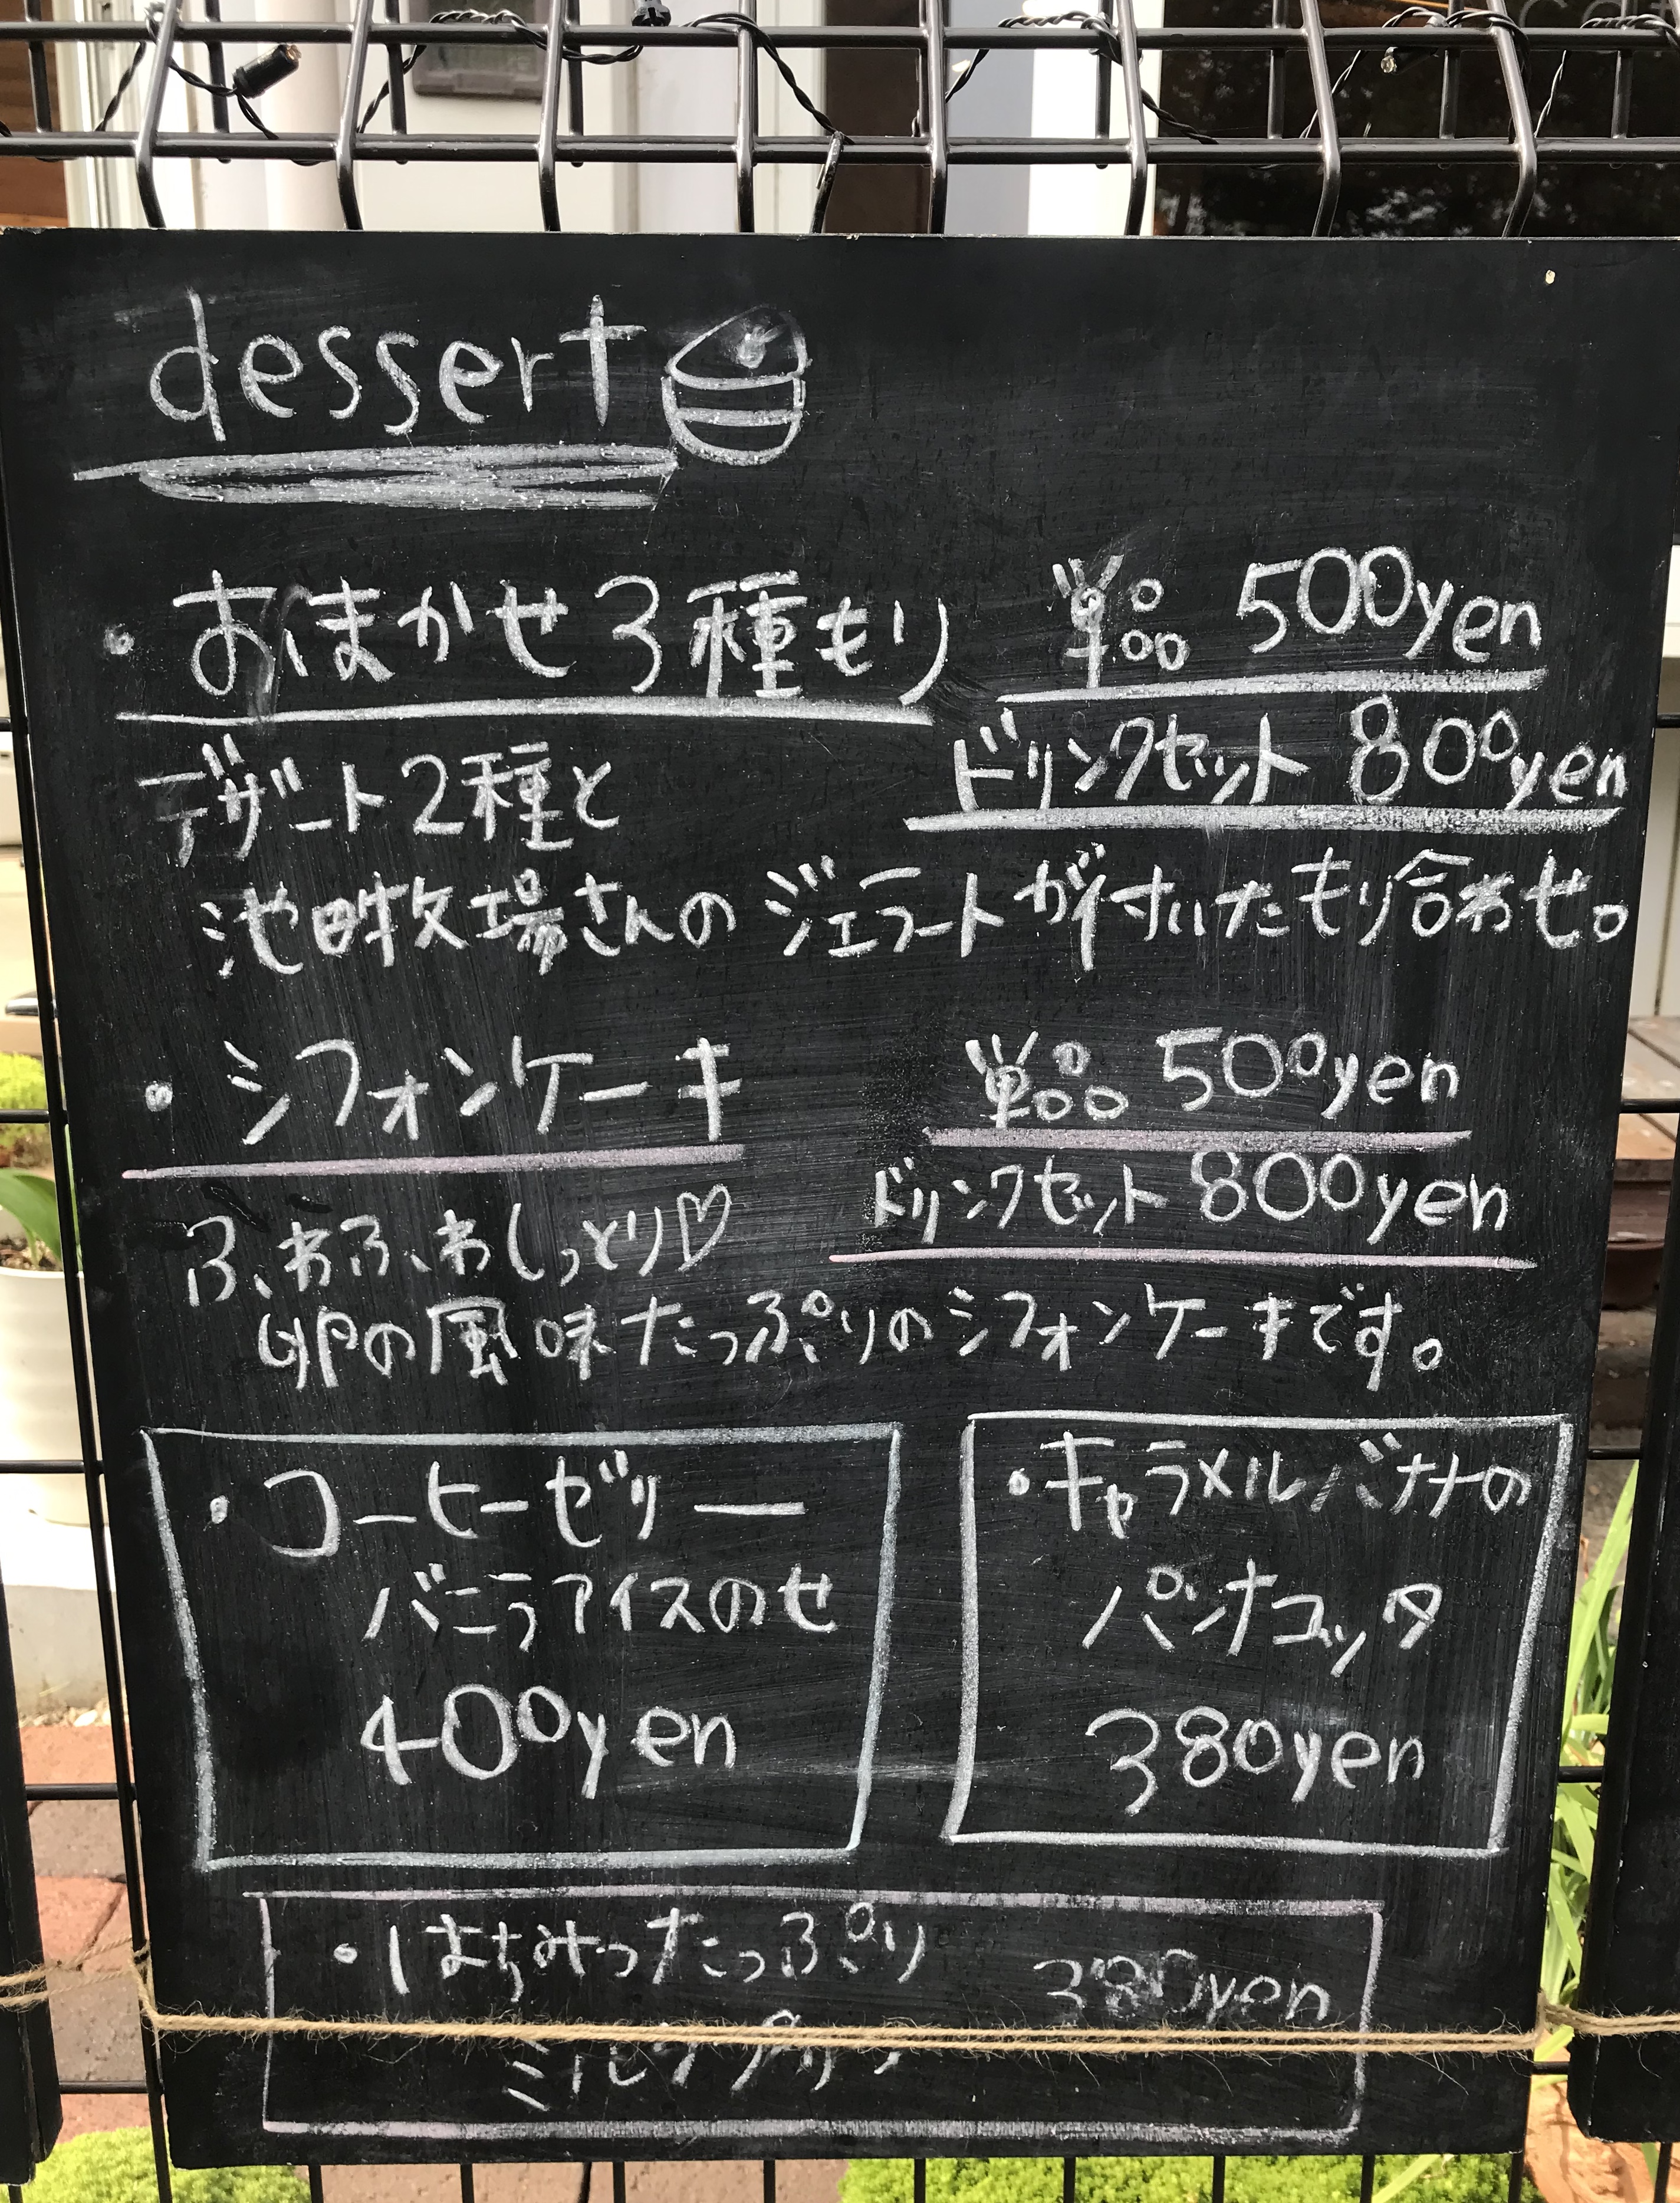 dessert
・おまかせ3種もり 単品 500yen
ドリンクセット 800yen
デザート2種と
池田牧場さんのジェラートが付いたもり合わせ。
・シフォンケーキ 単品 500yen
ドリンクセット 800yen
ふわふわしっとり♡
卵の風味たっぷりのシフォンケーキです。
・コーヒーゼリー
バニラアイスのせ
400yen
・キャラメルバナナの
パンナコッタ
380yen
・はちみつたっぷり 380yen
ミルクプリン